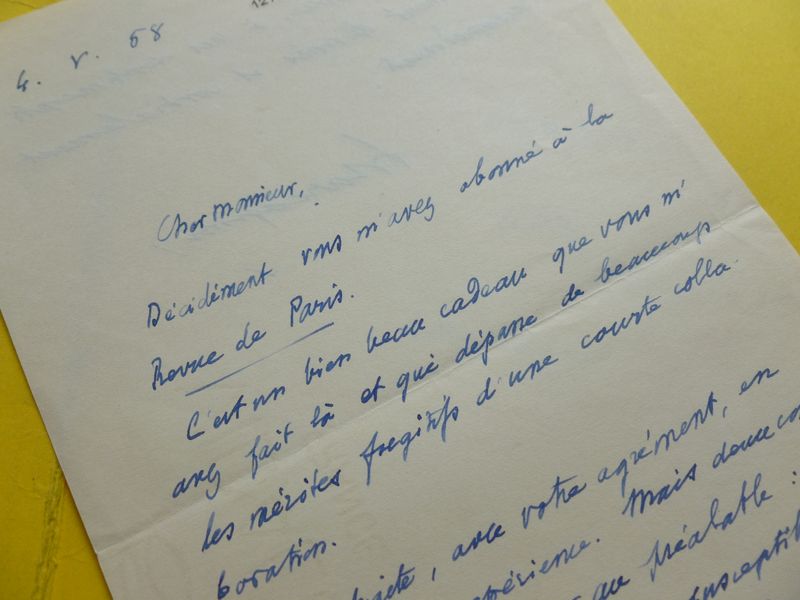 4. V. 58
Cher Monsieur,
Décidément vous m'avez abonné à la
Revue de Paris.
C'est un bien beau cadeau que vous m'
avez fait là et qui dépasse de beaucoup
les mérites fugitifs d'une courte colla-
boration.
, avec votre agrément, en
Mais deux
au préalable :